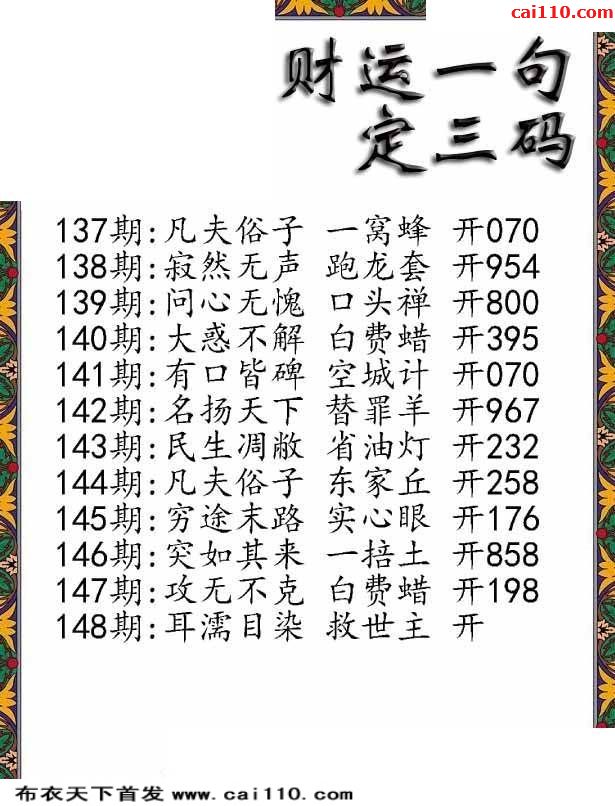 cai110.com
财运一句
定三码
137期:凡夫俗子 一窝蜂 开070
138期:寂然无声 跑龙套 开954
139期:问心无愧 口头禅 开800
140期:大惑不解 白费蜡 开395
141期:有口皆碑 空城计 开070
142期:名扬天下 替罪羊 开967
143期:民生凋敝 省油灯 开232
144期:凡夫俗子 东家丘 开258
145期:穷途末路 实心眼 开176
146期:突如其来 一掊土 开858
147期:攻无不克 白费蜡 开198
148期:耳濡目染 救世主 开
布衣天下首发 www.cai110.com